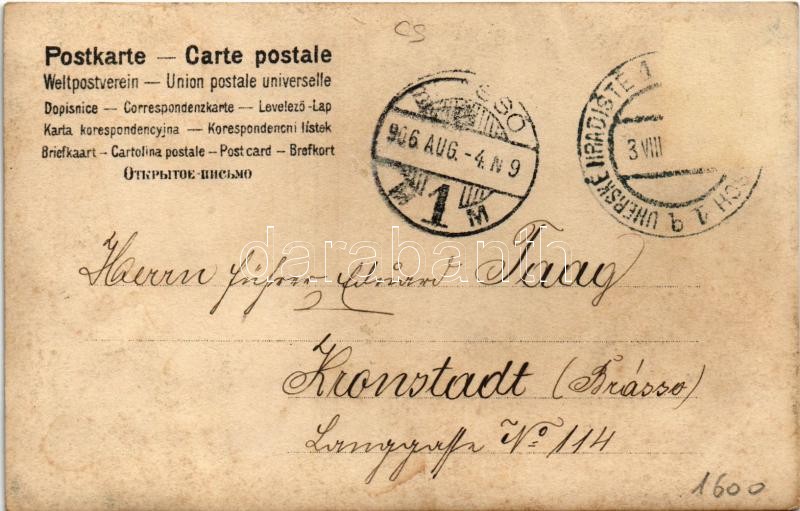 CS
Postkarte — Carte postale
Weltpostverein — Union postale universelle
Dopisnice — Correspondenzkarte — Levelező-Lap
Karta korespondencyjna — Korespondencni lístek
Briefkaart — Cartolina postale — Post card — Brefkort
Открытое письмо
906. AUG. -4. N 9
1
M
UHERSKÉ HRADIŠTĚ 1
3 VIII
darabanth
Herrn Führer Eduard Taag
Kronstadt (Brásso)
Langgasse No 114
1600